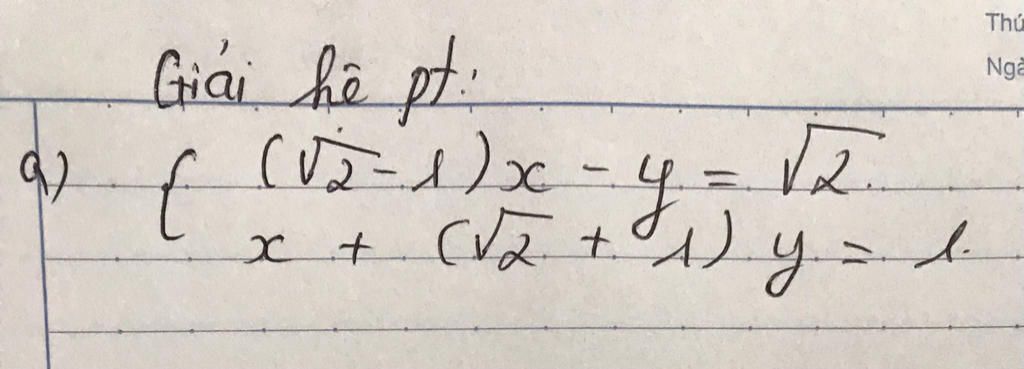 Thứ
Ngà
Giải hệ pt:
a) { (√2 - 1)x - y = √2.
x + (√2 + 1) y = 1.